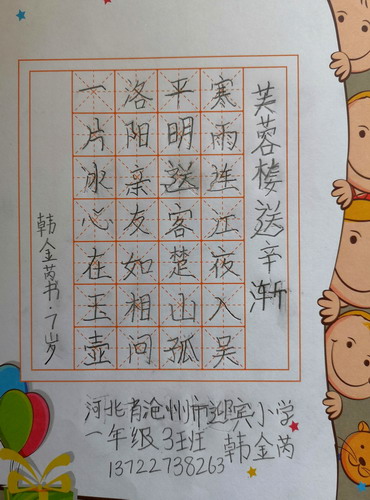 芙蓉楼送辛渐
寒雨连江夜入吴
平明送客楚山孤
洛阳亲友如相问
一片冰心在玉壶
韩金芮书·7岁
河北省沧州市迎宾小学
一年级3班 韩金芮
13722738263